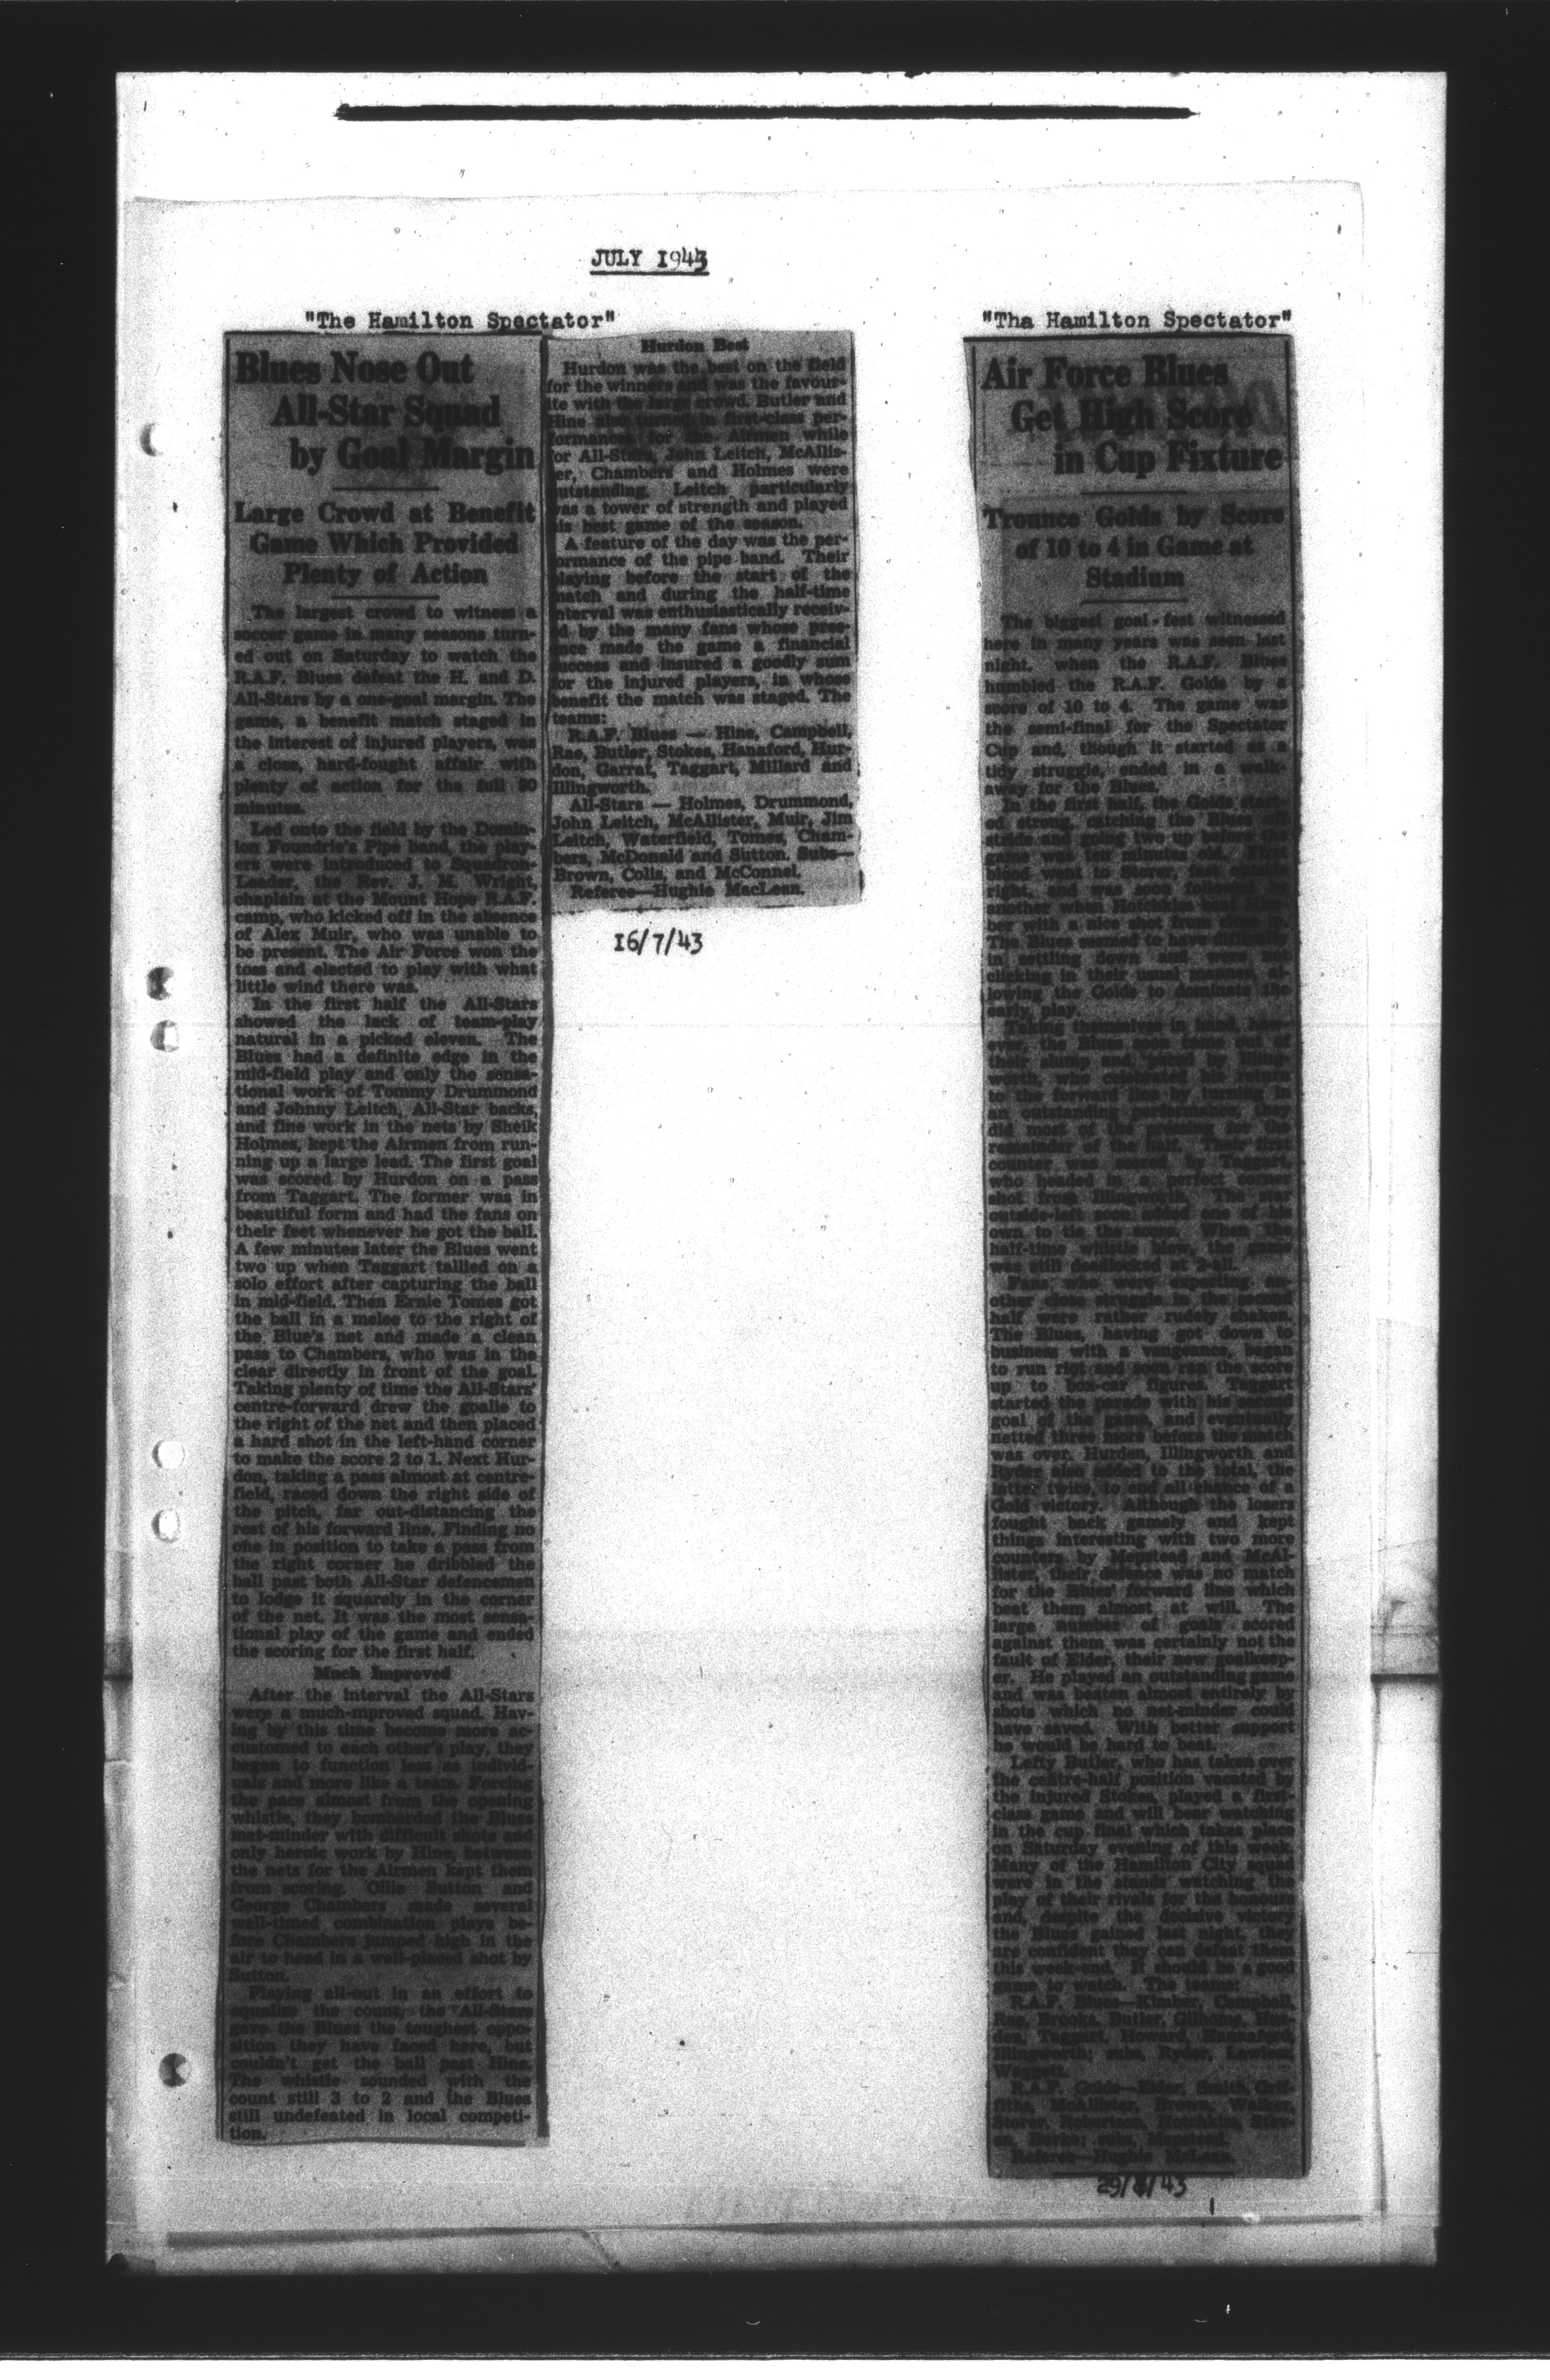 JULY 1943
"The Hamilton Spectator"
Blues Nose Out
All-Star Squad
by Goal Margin
Large Crowd at Benefit
Game Which Provided
Plenty of Action
The largest crowd to witness a
soccer game in many seasons turn-
ed out on Saturday to watch the
R.A.F. Blues defeat the H. and D.
All-Stars by a one-goal margin. The
game, a benefit match staged in
the interest of injured players, was
a close, hard-fought affair with
plenty of action for the full 90
minutes.
Led onto the field by the Domin-
ion Foundrie's Pipe band, the play-
ers were introduced to Squadron-
Leader, the Rev. J. M. Wright,
chaplain at the Mount Hope R.A.F.
camp, who kicked off in the absence
of Alex Muir, who was unable to
be present. The Air Force won the
toss and elected to play with what
little wind there was.
In the first half the All-Stars
showed the lack of team-play
natural in a picked eleven. The
Blues had a definite edge in the
mid-field play and only the sensa-
tional work of Tommy Drummond
and Johnny Leitch, All-Star backs,
and fine work in the nets by Sheik
Holmes, kept the Airmen from run-
ning up a large lead. The first goal
was scored by Hurdon on a pass
from Taggart. The former was in
beautiful form and had the fans on
their feet whenever he got the ball.
A few minutes later the Blues went
two up when Taggart tallied on a
solo effort after capturing the ball
in mid-field. Then Ernie Tomes got
the ball in a melee to the right of
the Blue's net and made a clean
pass to Chambers, who was in the
clear directly in front of the goal.
Taking plenty of time the All-Stars'
centre-forward drew the goalie to
the right of the net and then placed
a hard shot in the left-hand corner
to make the score 2 to 1. Next Hur-
don, taking a pass almost at centre-
field, raced down the right side of
the pitch, far out-distancing the
rest of his forward line. Finding no
one in position to take a pass from
the right corner he dribbled the
ball past both All-Star defencemen
to lodge it squarely in the corner
of the net. It was the most sensa-
tional play of the game and ended
the scoring for the first half.
Much Improved
After the interval the All-Stars
were a much-mproved squad. Hav-
ing by this time become more ac-
customed to each other's play, they
began to function less as individ-
uals and more like a team. Forcing
the pace almost from the opening
whistle, they bombarded the Blues
met-minder with difficult shots and
only heroic work by Hine, between
the nets for the Airmen kept them
from scoring. Ollie Sutton and
George Chambers made several
well-timed combination plays be-
fore Chambers jumped high in the
air to head in a well-placed shot by
Sutton.
Playing all-out in an effort to
equalize the count, the All-Stars
gave the Blues the toughest oppo-
sition they have faced here, but
couldn't get the ball past Hine.
The whistle sounded with the
count still 3 to 2 and the Blues
still undefeated in local competi-
tion.
Hurdon Best
Hurdon was the best on the field
for the winners and was the favour-
ite with the large crowd. Butler and
Hine also turned in first-class per-
formances for the Airmen while
or All-Stars, John Leitch, McAllis-
er, Chambers and Holmes were
utstanding. Leitch particularly
as a tower of strength and played
is best game of the season.
A feature of the day was the per-
ormance of the pipe band. Their
laying before the start of the
match and during the half-time
nterval was enthusiastically receiv-
d by the many fans whose pres-
nce made the game a financial
uccess and insured a goodly sum
for the injured players, in whose
benefit the match was staged. The
teams:
R.A.F. Blues — Hine, Campbell,
Rae, Butler, Stokes, Hanaford, Hur-
don, Garrat, Taggart, Millard and
Illingworth.
All-Stars — Holmes, Drummond,
John Leitch, McAllister, Muir, Jim
Leitch, Waterfield, Tomes, Cham-
bers, McDonald and Sutton. Subs—
Brown, Colis, and McConnel.
Referee—Hughie MacLean.
16/7/43
"Tha Hamilton Spectator"
Air Force Blues
Get High Score
in Cup Fixture
Trounce Golds by Score
of 10 to 4 in Game at
Stadium
The biggest goal-fest witnessed
here in many years was seen last
night, when the R.A.F. Blues
humbled the R.A.F. Golds by a
score of 10 to 4. The game was
the semi-final for the Spectator
Cup and, though it started as a
tidy struggle, ended in a walk-
away for the Blues.
In the first half, the Golds start-
ed strong, catching the Blues off
stride and going two up before the
game was ten minutes old. First
blood went to Storer,
right, and was soon followed by
another when Hotchkiss beat Kim-
ber with a nice shot from
The Blues seemed to have difficulty
in settling down and were not
clicking in their usual manner, al-
lowing the Golds to dominate the
early play.
Taking themselves in hand, how-
ever, the Blues soon came out of
their slump and, paced by Illing-
worth, who celebrated his return
to the forward line by turning in
an outstanding performance, they
did most of the pressing for the
remainder of the half. Their first
counter was scored by Taggart,
who headed in a perfect corner
shot from Illingworth. The star
outside-left soon added one of his
own to tie the score. When the
half-time whistle blew, the game
was still deadlocked at 2-all.
Fans who were expecting an-
other close struggle in the second
half were rather rudely shaken.
The Blues, having got down to
business with a vengeance, began
to run riot and soon ran the score
up to box-car figures. Taggart
started the parade with his second
goal of the game, and eventually
netted three more before the match
was over. Hurden, Illingworth and
Ryder also added to the total, the
latter twice, to end all chance of a
Gold victory. Although the losers
fought back gamely and kept
things interesting with two more
counters by Mepstead and McAl-
lister, their defence was no match
for the Blues' forward line which
beat them almost at will. The
large number of goals scored
against them was certainly not the
fault of Elder, their new goalkeep-
er. He played an outstanding game
and was beaten almost entirely by
shots which no net-minder could
have saved. With better support
he would be hard to beat.
Lefty Butler, who has taken over
the centre-half position vacated by
the injured Stokes, played a first-
class game and will bear watching
in the cup final which takes place
on Saturday evening of this week.
Many of the Hamilton City squad
were in the stands watching the
play of their rivals for the honours
and, despite the decisive victory
the Blues gained last night, they
are confident they can defeat them
this week-end. It should be a good
game to watch. The teams:
R.A.F. Blues—Kimber, Campbell,
Rae, Brooks, Butler, Gilhome, Hur-
den, Taggart, Howard, Hannaford,
Illingworth; subs, Ryder, Lawless,
Waggett.
R.A.F. Golds—Elder, Smith, Grif-
fiths, McAllister, Brown, Walker,
Storer, Robertson, Hotchkiss,
Burke; subs, Mepstead.
Referee—Hughie McLean.
29/7/43